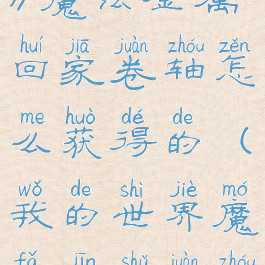 魔
huí jiā juàn zhóu zěn
回家卷轴怎
me huò dé de
么获得的（
wǒ de shì jiè mó
我的世界魔
fǎ jīn shǔ juàn zhóu